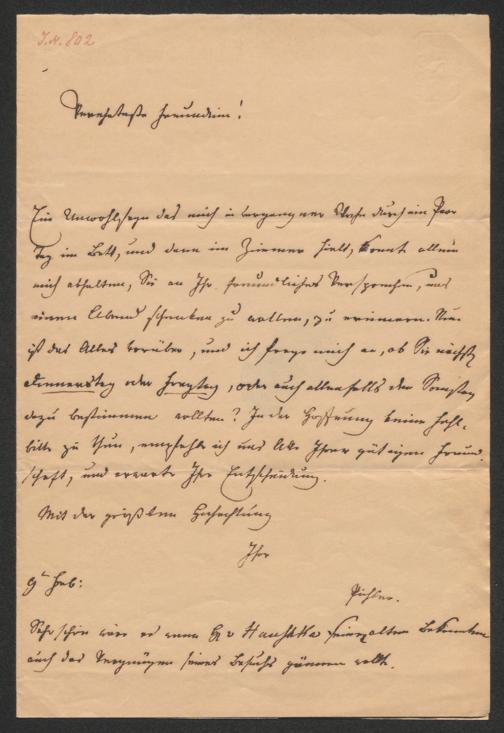 J.N. 802
Verehrteste Freundinn!
Ein Unwohlseyn das mich in vergangener Woche durch ein Paar
Tag im Bett, und dann im Zimmer hielt, konnte allein
mich abhalten, Sie an Ihr freundliches Versprechen, uns
einen Abend schenken zu wollen, zu erinnern. Nun
ist das Alles vorüber, und ich frage mich an, ob Sie nächsten
Donnerstag oder Freytag, oder auch allenfalls den Samstag
dazu bestimmen wollten? In der Hoffnung keine Fehl-
bitte zu thun, empfehle ich uns Alle Ihrer gütigen Freund-
schaft, und erwarte Ihre Entscheidung.
Mit der größten Hochachtung
Ihre
9t Feb:
Pichler.
Sehr schön wär es wenn H v seine alten Bekannten
auch das Vergnügen seines Besuchs gönnen wollte.